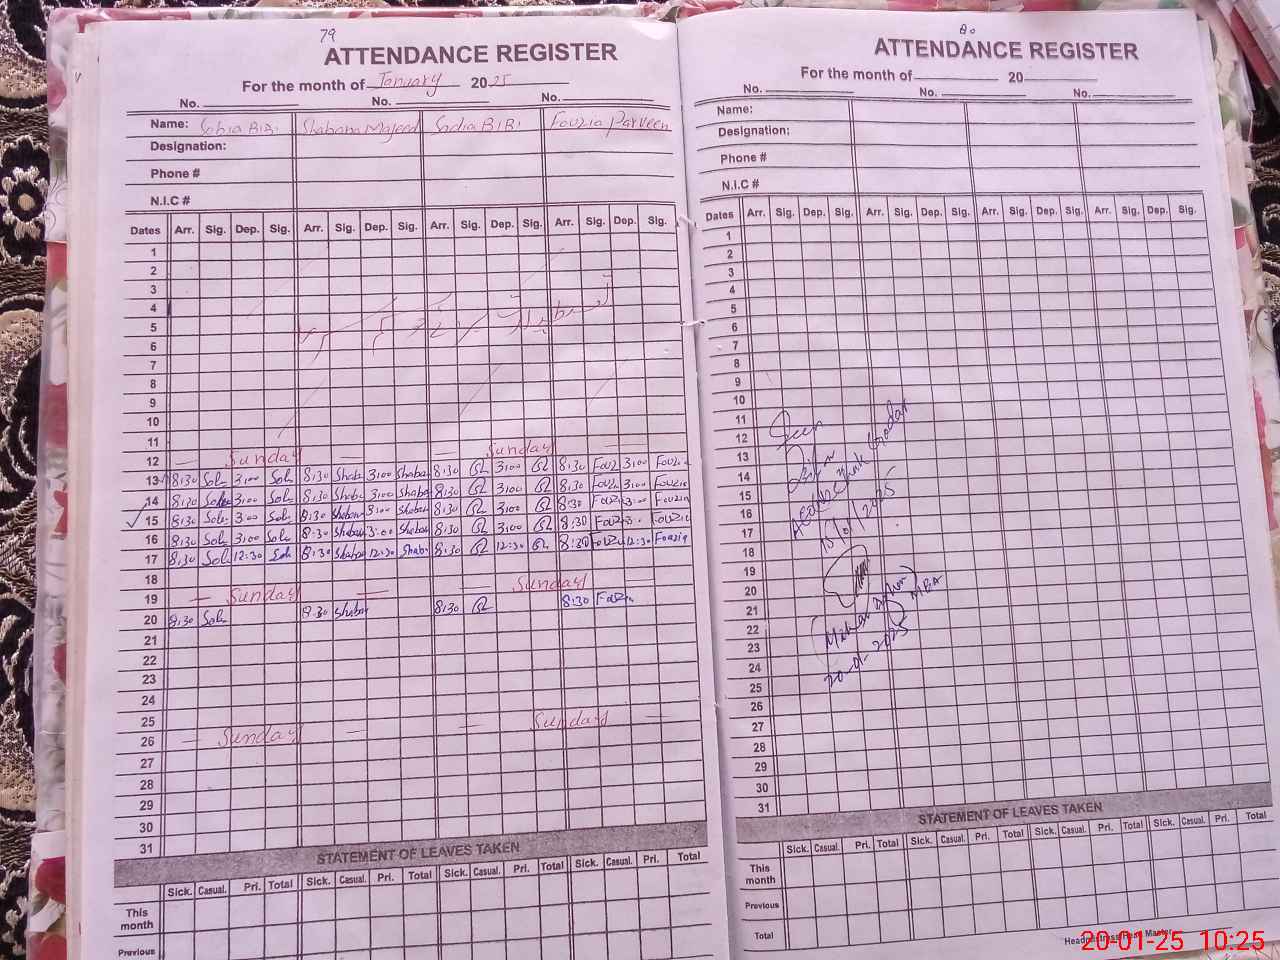 79
ATTENDANCE REGISTER
For the month of January 2025
No. No. No.
Name: Sobia BiBi Shabana Majeed Sadia BiBi Fouzia Parveen
Designation:
Phone #
N.I.C #
Dates Arr. Sig. Dep. Sig. Arr. Sig. Dep. Sig. Arr. Sig. Dep. Sig. Arr. Sig. Dep. Sig.
1
2
3
4
5
6
7
8
9
10
11
12 Sunday Sunday
13 8:30 3:00 8:30 3:00 8:30 3:00 8:30 3:00
14 8:30 3:00 8:30 3:00 8:30 3:00 8:30 3:00
15 8:30 3:00 8:30 3:00 8:30 3:00 8:30 3:00
16 8:30 3:00 8:30 3:00 8:30 3:00 8:30
17 8:30 12:30 8:30 12:30 8:30 12:30 8:30 12:30
18
19 Sunday Sunday
20 8:30 8:30 8:30 8:30
21
22
23
24
25
26 Sunday Sunday
27
28
29
30
31
STATEMENT OF LEAVES TAKEN
Sick. Casual. Pri. Total Sick. Casual. Pri. Total Sick. Casual. Pri. Total Sick. Casual. Pri. Total
This month
Previous
80
ATTENDANCE REGISTER
For the month of 20
No. No. No.
Name:
Designation:
Phone #
N.I.C #
Dates Arr. Sig. Dep. Sig. Arr. Sig. Dep. Sig. Arr. Sig. Dep. Sig. Arr. Sig. Dep. Sig.
1
2
3
4
5
6
7
8
9
10
11
12
13
14
15
16
17
18
19
20
21
22
23
24
25
26
27
28
29
30
31
15/01/2025
MEA
20-01-2025
STATEMENT OF LEAVES TAKEN
Sick. Casual. Pri. Total Sick. Casual. Pri. Total Sick. Casual. Pri. Total Sick. Casual. Pri. Total
This month
Previous
Total
Headmistress/Head Master
20-01-25 10:25